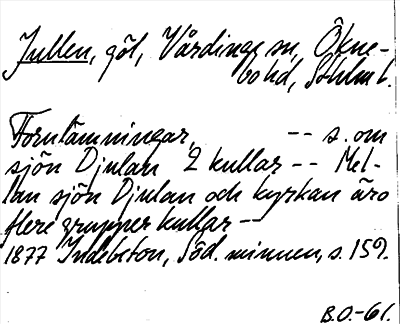 Jullen, göl, Vårdinge sn, Ökne-
bo hd, Sthlms l.
Fornlämningar, -- s. om
sjön Djulan 2 kullar -- Mel-
lan sjön Djulan och kyrkan äro
flere grupper kullar --
1877 Indebetou, Söd. minnen, s. 159.
B.O.-61.